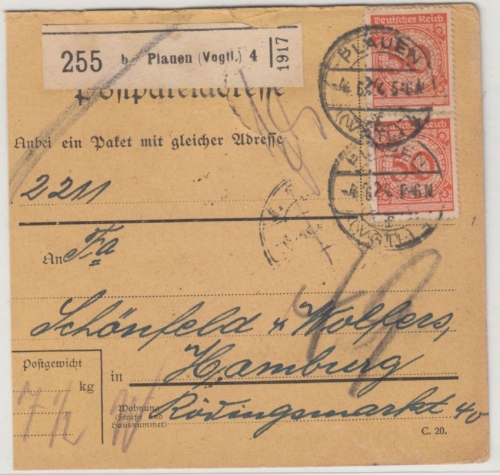 255 b Plauen (Vogtl.) 4 1917
Deutsches Reich
PLAUEN
(VOGTL.)
Deutsches Reich
(VOGTL.)
Postpaketadresse
Anbei ein Paket mit gleicher Adresse
2211
An Fa
Schönfeld u Wolfers,
Hamburg
in
Rödingsmarkt 40
Wohnung
(Straße und
Hausnummer)
Postgewicht
7½ kg
C. 20.